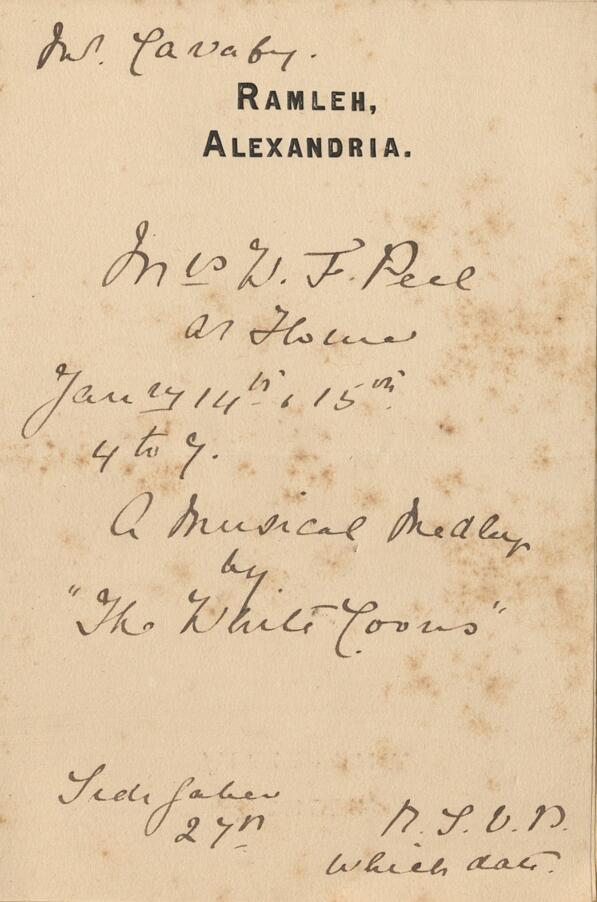 Mr. Cavafy.
RAMLEH,
ALEXANDRIA.
Mrs W. F. Peel
at Home
Janry 14th & 15th
4 to 7.
A Musical Medley
by
"The White Coons"
Sidi Gaber
27th
R. S. V. P.
which date.